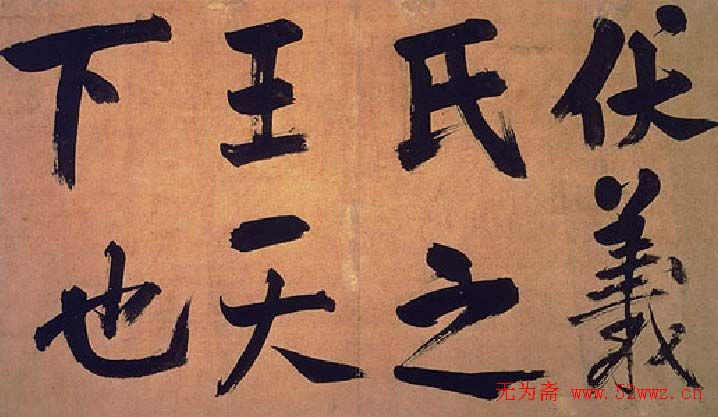 伏羲
氏之
王天
下也
无为斋 www.52wwz.cn